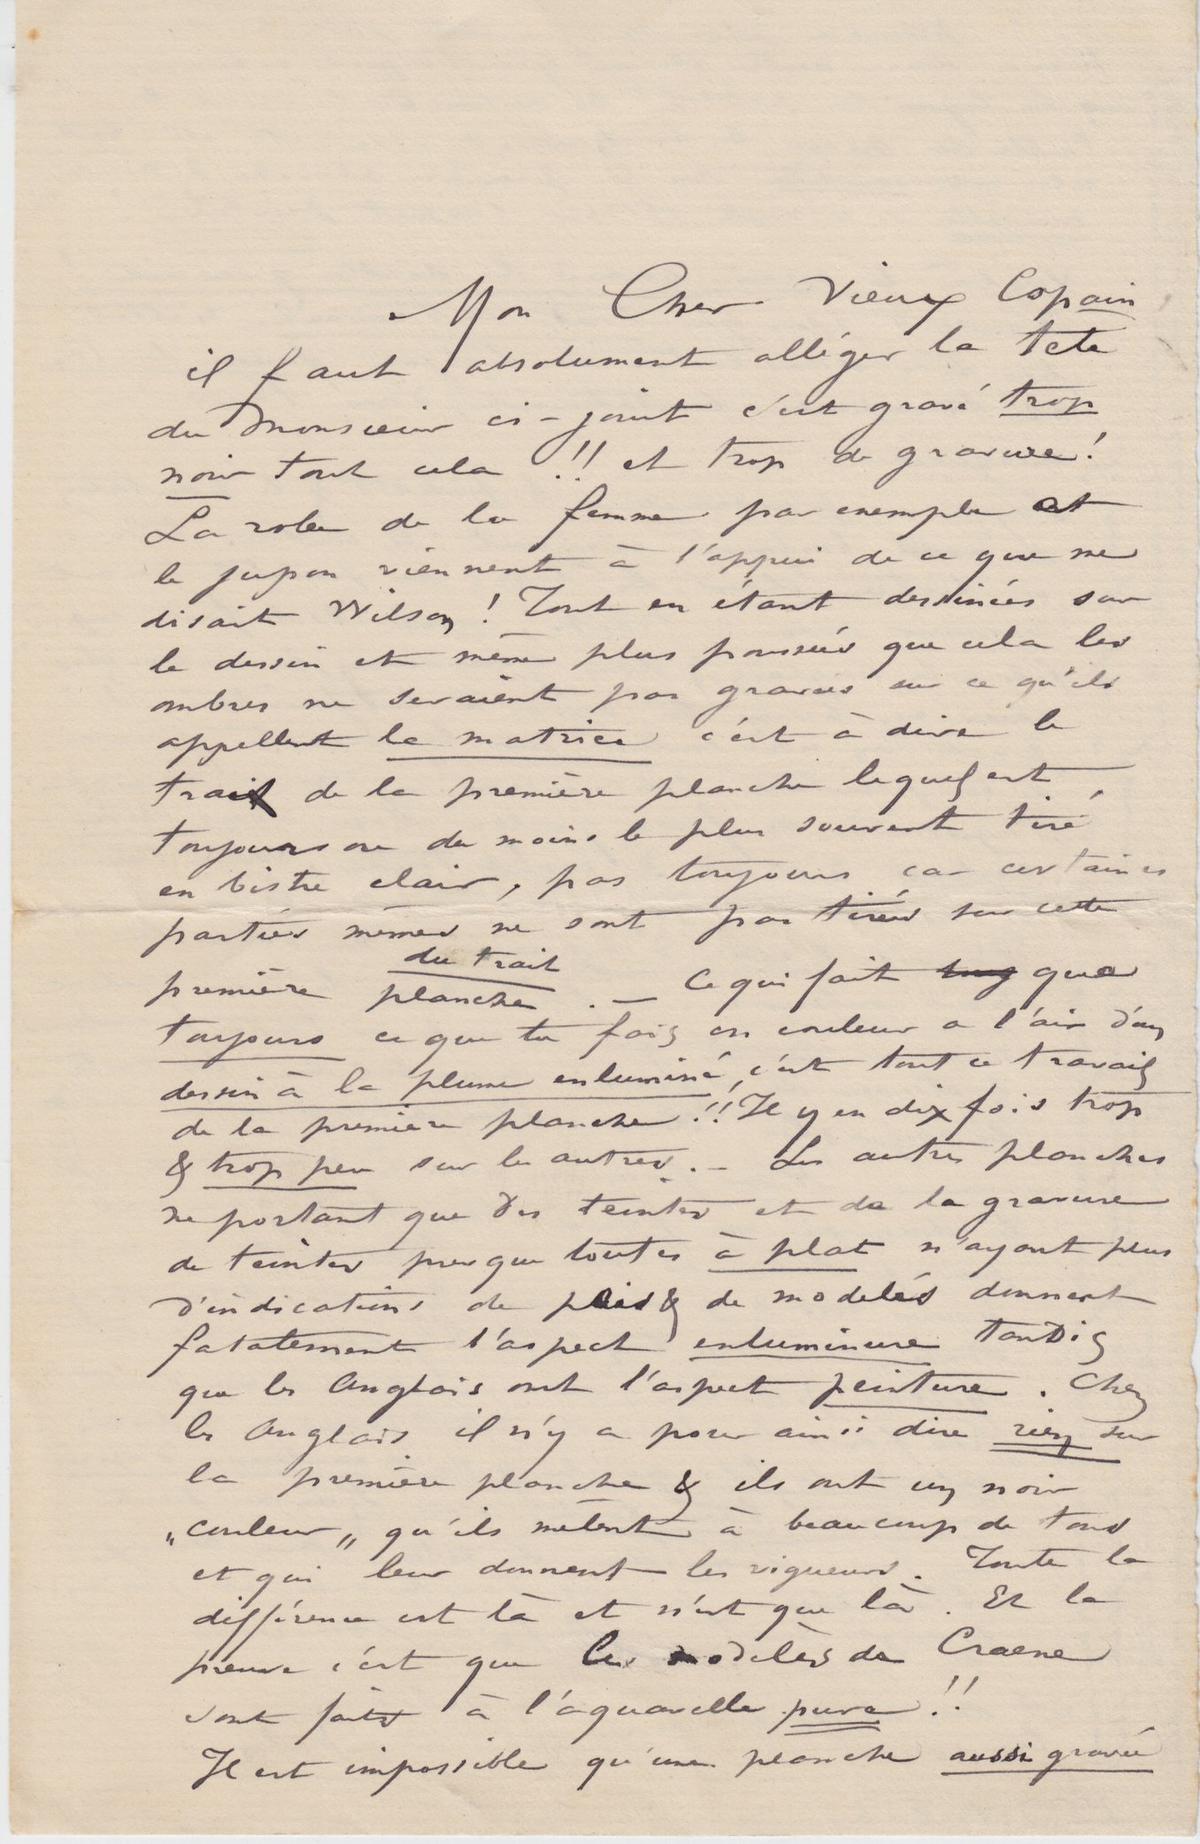 Mon Cher Vieux Copain
il faut absolument alléger la tete
du Monsieur ci-joint c'est gravé trop
noir tout cela !!! et trop de gravure!
La robe de la femme par exemple et
le jupon viennent à l'appui de ce que me
disait Wilson! Tout en étant dessinées sur
le dessin et même plus poussées que cela les
ombres ne seraient pas gravées sur ce qu'ils
appellent la matrice c'est à dire le
trait de la première planche lequel est
toujours ou du moins le plus souvent tiré
en bistre clair, pas toujours car certaines
parties mêmes ne sont pas tirées sur cette
du trait
première planche . — Ce qui fait que
toujours ce que tu fais en couleur a l'air d'un
dessin à la plume enluminé, c'est tout ce travail
de la première planche!!! Il y en dix fois trop
& trop peu sur les autres. — Les autres planches
ne portant que des teintes et de la gravure
de teintes presque toutes à plat n'ayant plus
d'indications de plis & de modelés donnent
fatalement l'aspect enluminure tandis
que les Anglais ont l'aspect peinture. Chez
les Anglais il n'y a pour ainsi dire rien sur
la première planche & ils ont un noir
„couleur„ qu'ils mêlent à beaucoup de tons
et qui leur donnent les vigueurs. Toute la
différence est là et n'est que là. Et la
preuve c'est que les modèles de Craene
sont faits à l'aquarelle pure!!
Il est impossible qu'une planche aussi gravée